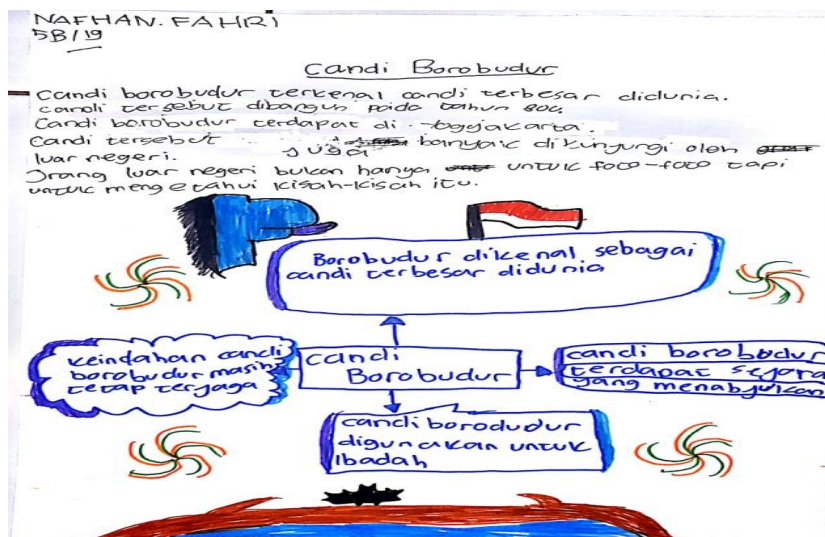 NAFHAN.FAHRI
5B/19
Candi Borobudur
Candi borobudur terkenal candi terbesar didunia.
candi tersebut dibangun pada tahun 800.
Candi borobudur terdapat di Yogyakarta.
Candi tersebut juga banyak dikunjungi oleh
luar negeri.
Orang luar negeri bukan hanya untuk foto-foto tapi
untuk mengetahui kisah-kisah itu.
Borobudur dikenal sebagai
candi terbesar didunia
keindahan candi
borobudur masih
tetap terjaga
candi
Borobudur
candi borobudur
terdapat sejara
yang menabjukan
candi borodudur
digunakan untuk
Ibadah